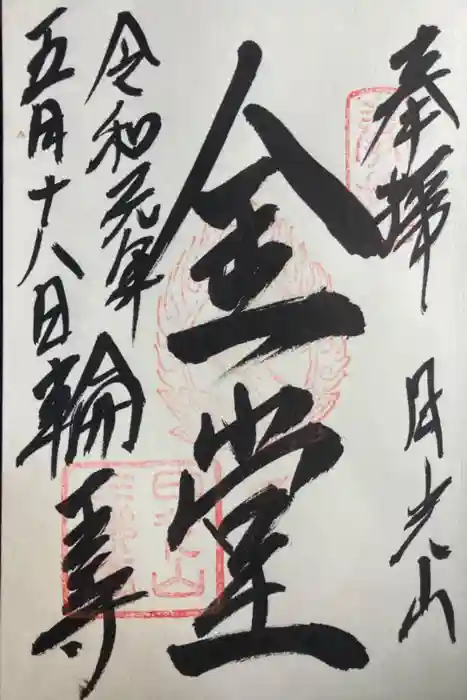 奉拝 日光山
金堂
令和元年
五月十八日 輪王寺